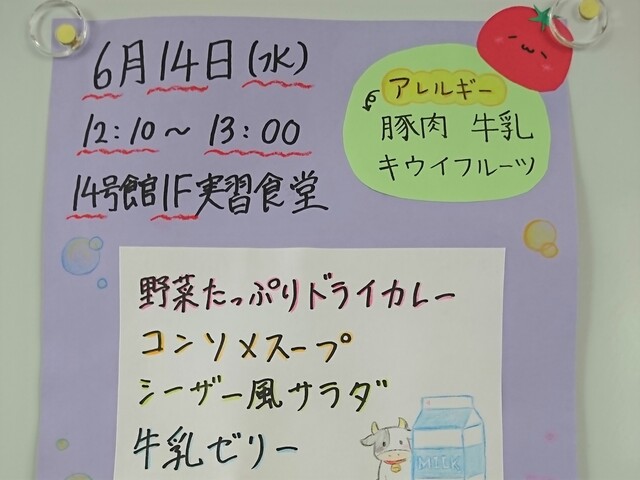 6月14日(水)
12:10～13:00
14号館1F実習食堂
アレルギー
豚肉 牛乳
キウイフルーツ
野菜たっぷりドライカレー
コンソメスープ
シーザー風サラダ
牛乳ゼリー
MILK